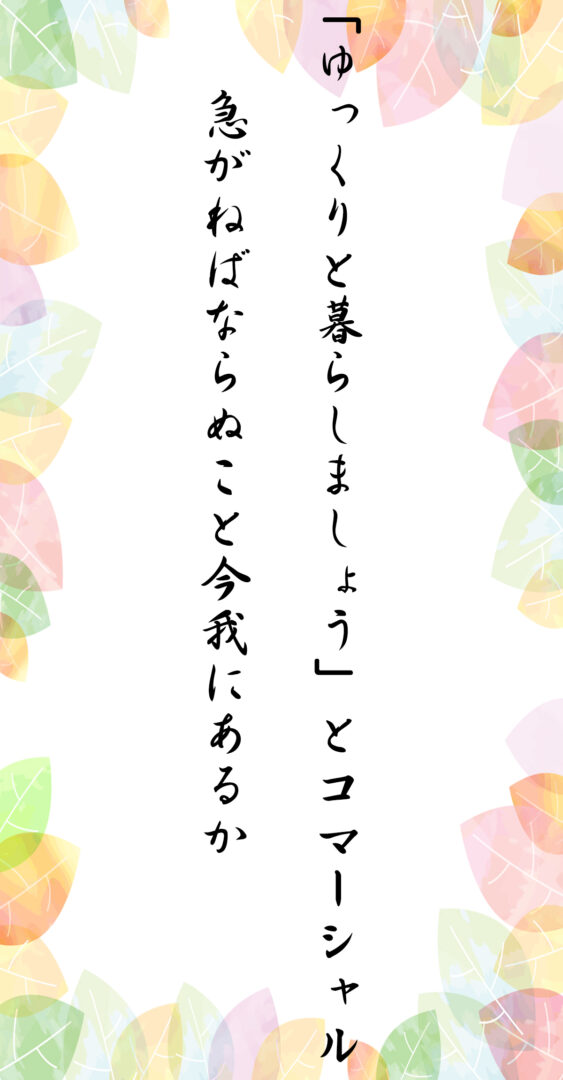 「ゆっくりと暮らしましょう」とコマーシャル
急がねばならぬこと今我にあるか